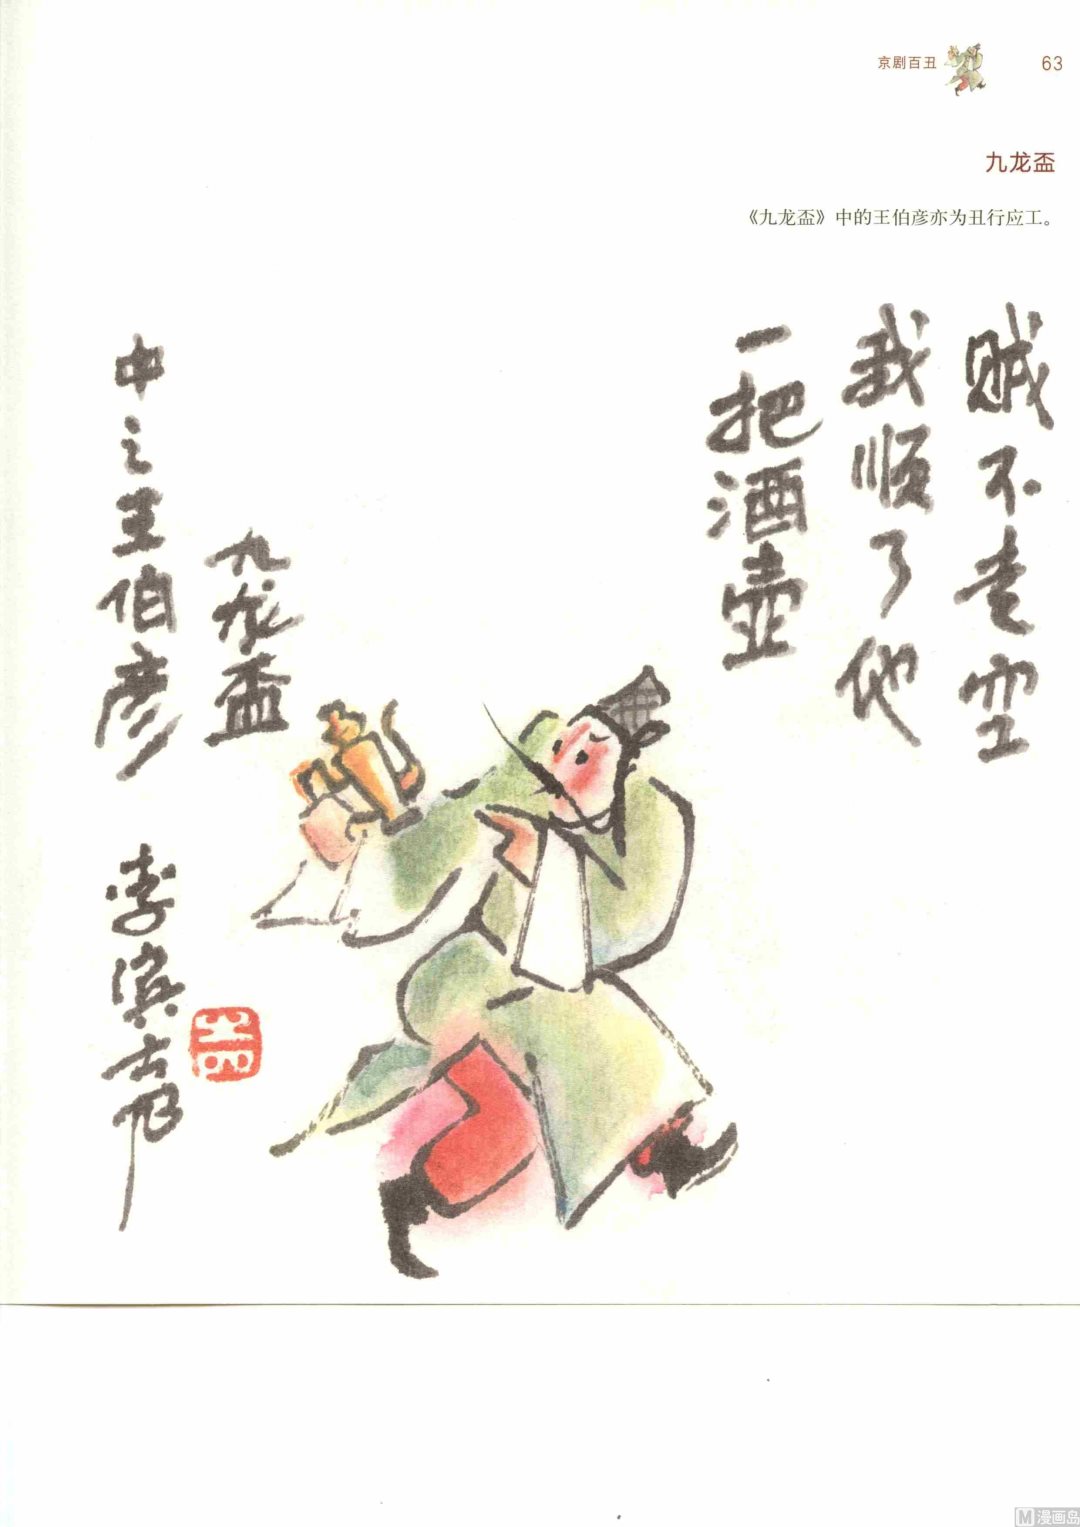 京剧百丑
63
九龙盃
《九龙盃》中的王伯彦亦为丑行应工。
贼不走空
我顺了他
一把酒壶
九龙盃
中之王伯彦
李滨声
漫画岛